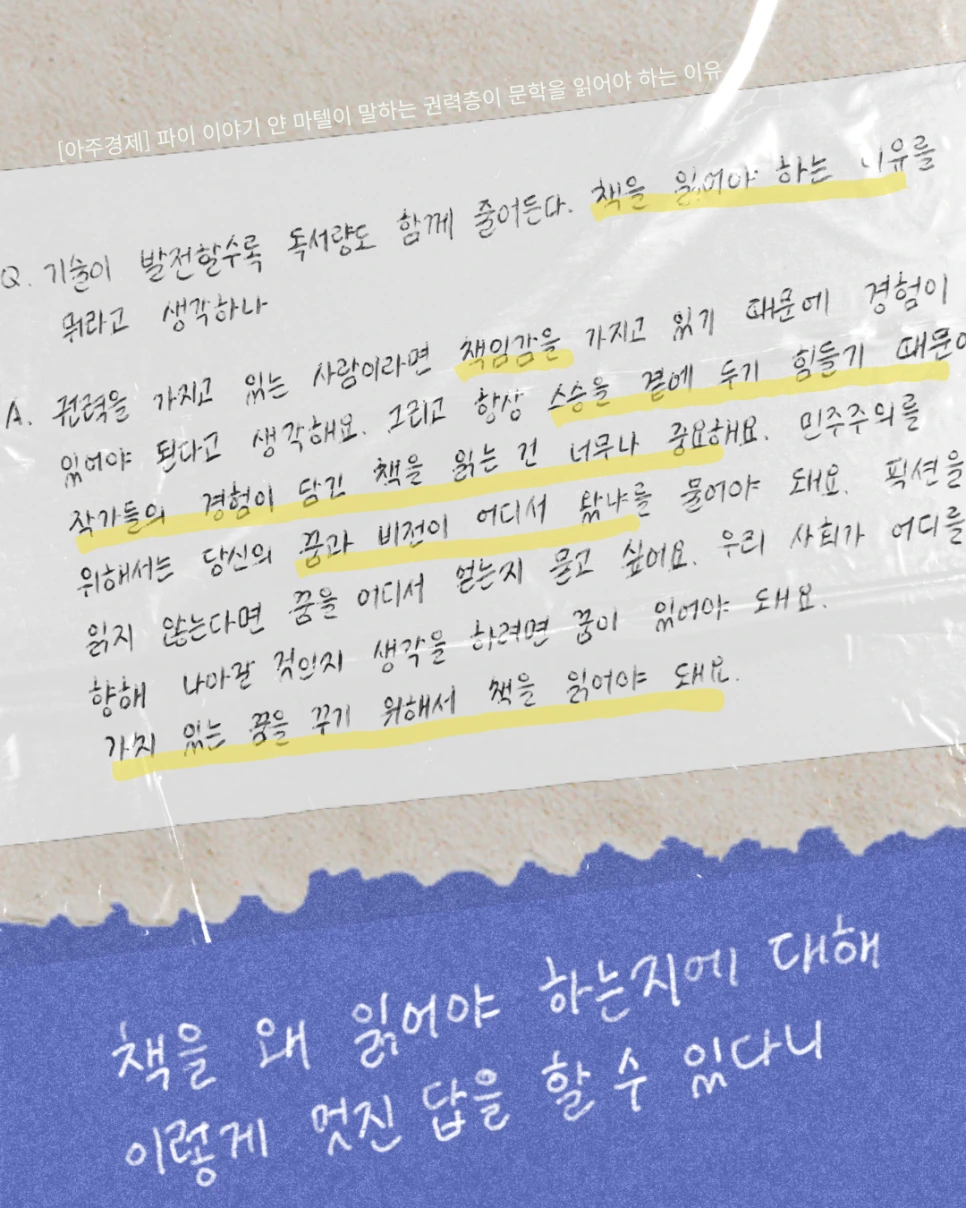 [아주경제] 파이 이야기 얀 마텔이 말하는 권력층이 문학을 읽어야 하는 이유
Q. 기술이 발전할수록 독서량도 함께 줄어든다. 책을 읽어야 하는 이유를
뭐라고 생각하나
A. 권력을 가지고 있는 사람이라면 책임감을 가지고 있기 때문에 경험이
있어야 된다고 생각해요. 그리고 항상 스승을 곁에 두기 힘들기 때문에
작가들의 경험이 담긴 책을 읽는 건 너무나 중요해요. 민주주의를
위해서는 당신의 꿈과 비전이 어디서 왔냐를 물어야 돼요. 픽션을
읽지 않는다면 꿈을 어디서 얻는지 묻고 싶어요. 우리 사회가 어디를
향해 나아갈 것인지 생각을 하려면 꿈이 있어야 돼요.
가치 있는 꿈을 꾸기 위해서 책을 읽어야 돼요.
책을 왜 읽어야 하는지에 대해
이렇게 멋진 답을 할 수 있다니